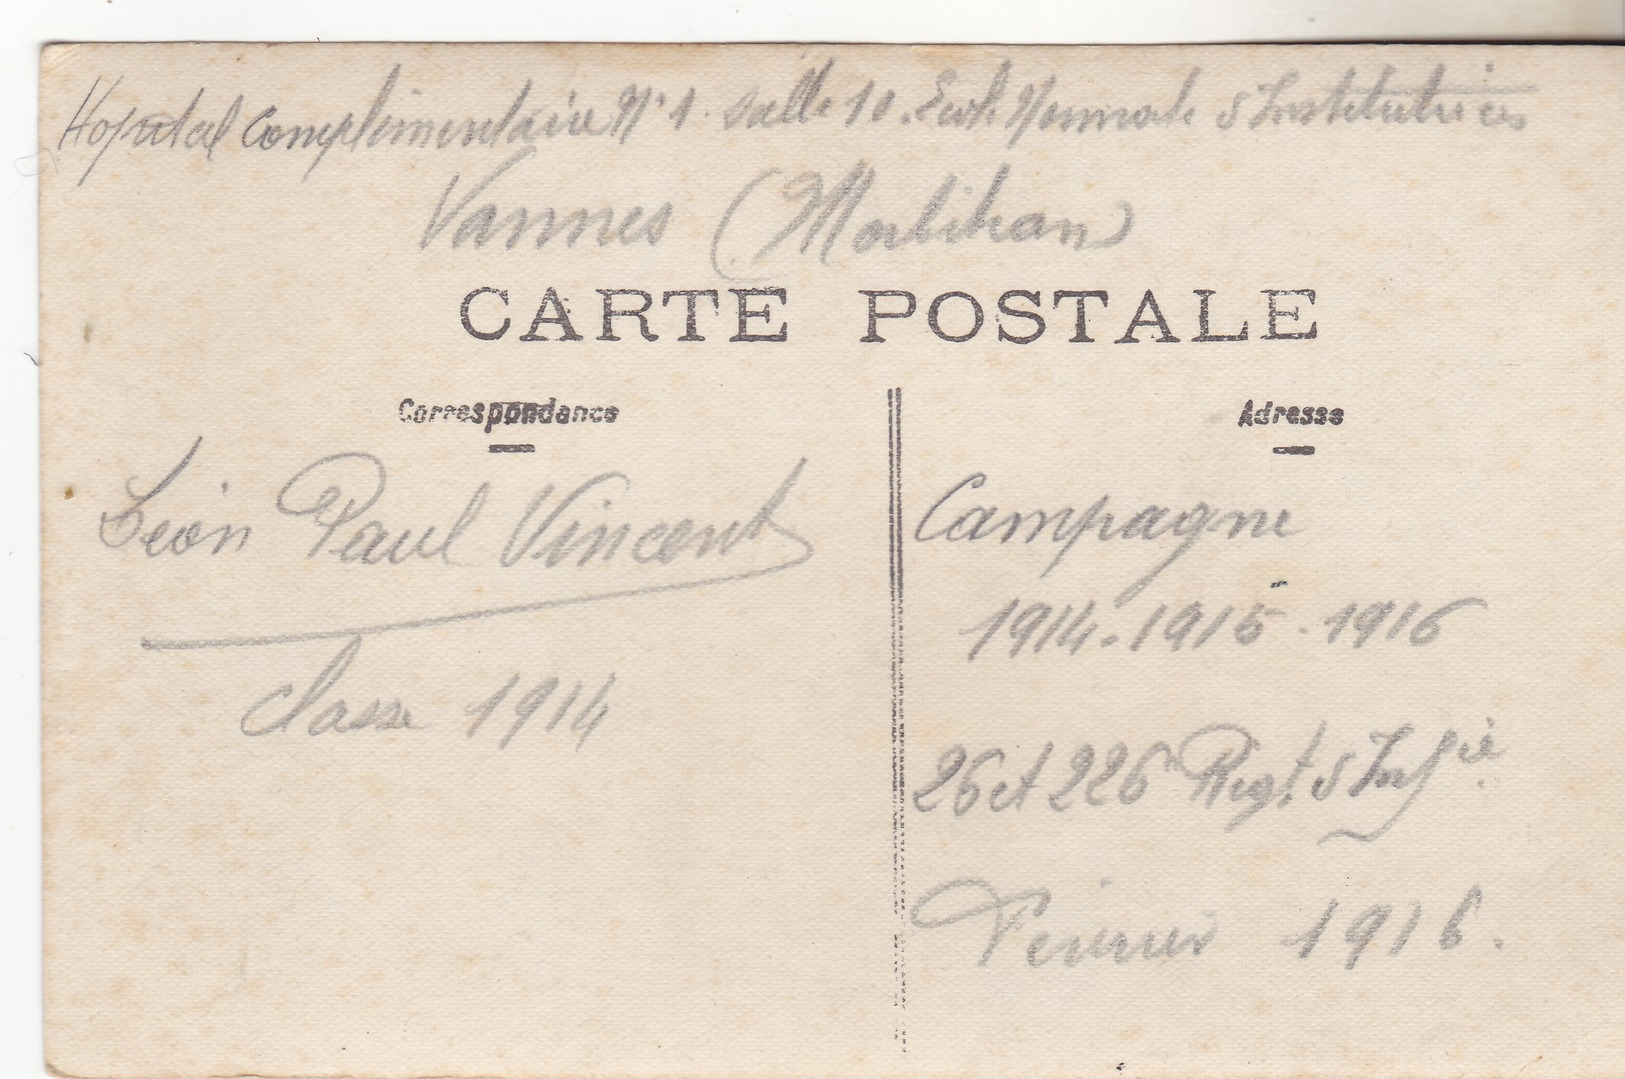 Hopital Complémentaire N° 1. Salle 10. Ecole Normale d'Institutrices
Vannes (Morbihan)
CARTE POSTALE
Correspondance
Adresse
Léon Paul Vincent
Classe 1914
Campagne
1914-1915-1916
26 et 226e Regt. d'Infie
Février 1916.